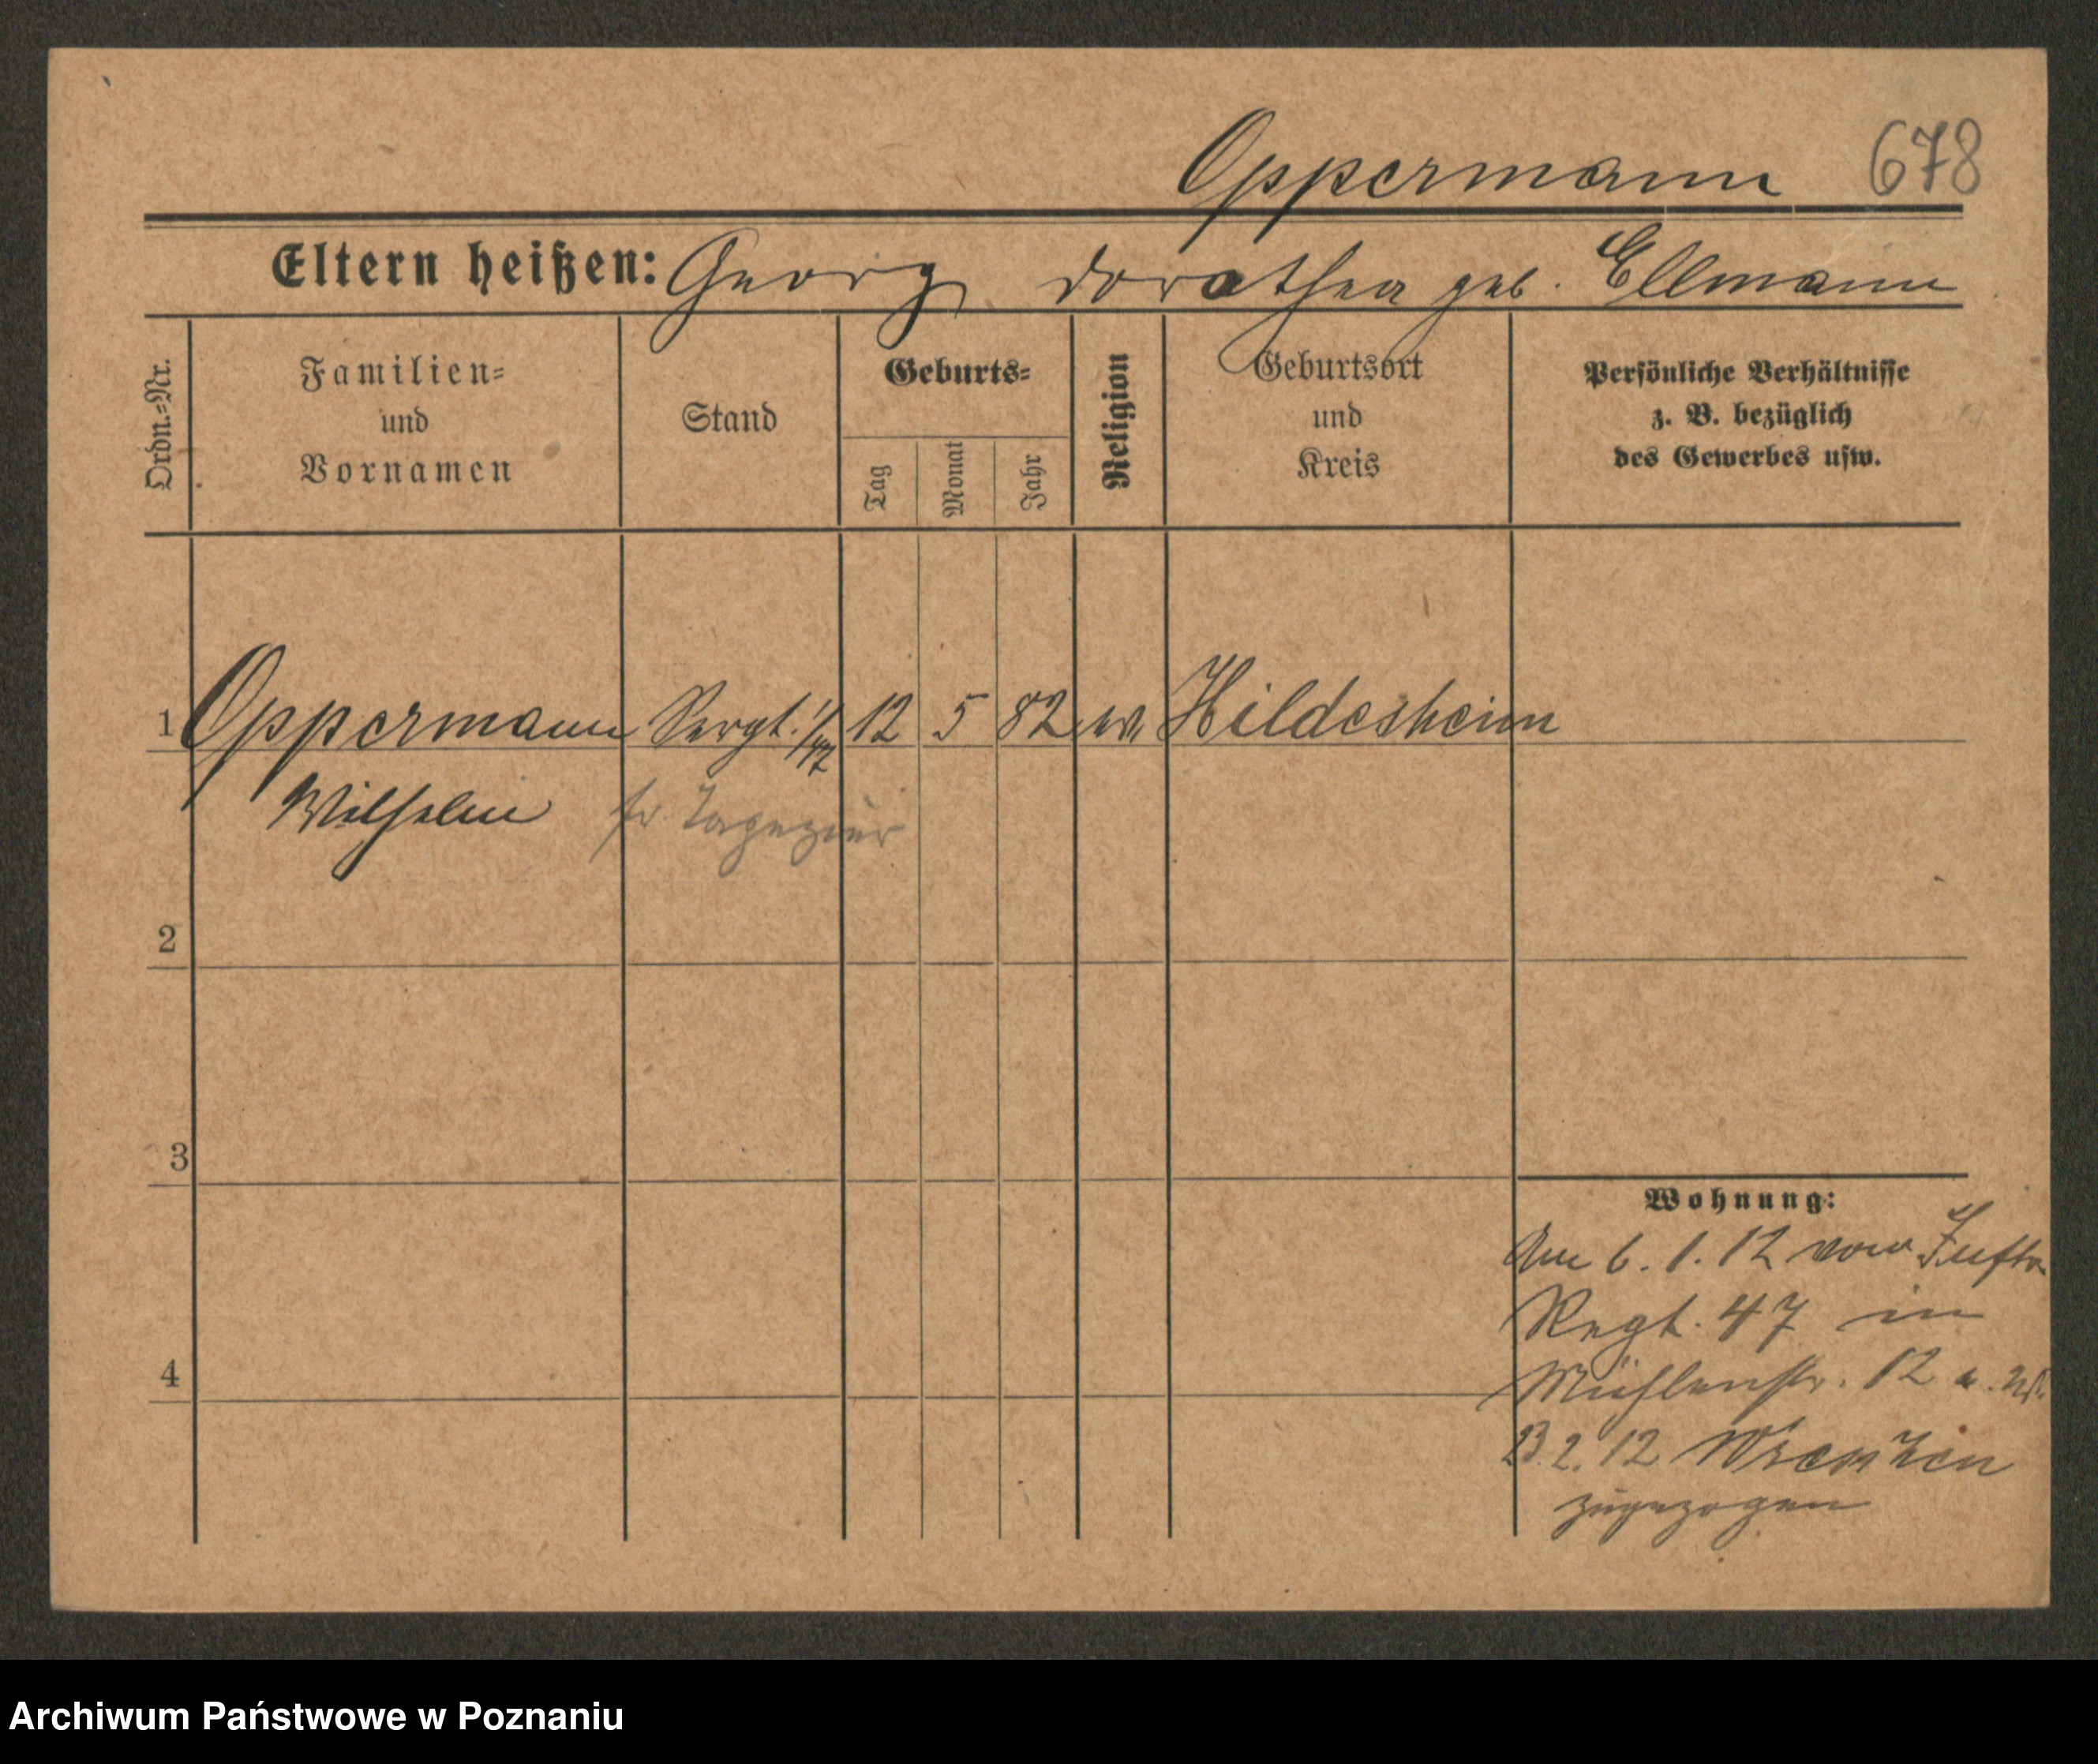 Oppermann 678
Eltern heißen: Georg Dorothea geb. Ellmann
Ordn.-Nr.
Familien-
und
Vornamen
Stand
Geburts-
Tag
Monat
Jahr
Religion
Geburtsort
und
Kreis
Persönliche Verhältnisse
z. B. bezüglich
des Gewerbes usw.
1 Oppermann Sergt. 1/47 12 5 82 ev. Hildesheim
Wilhelm fr Tapezier
2
3
4
Wohnung:
Am 6. 1. 12 vom Inftr.
Regt. 47 in
Mühlenstr. 12 a.
23. 2. 12 Wreschen
zugezogen
Archiwum Państwowe w Poznaniu